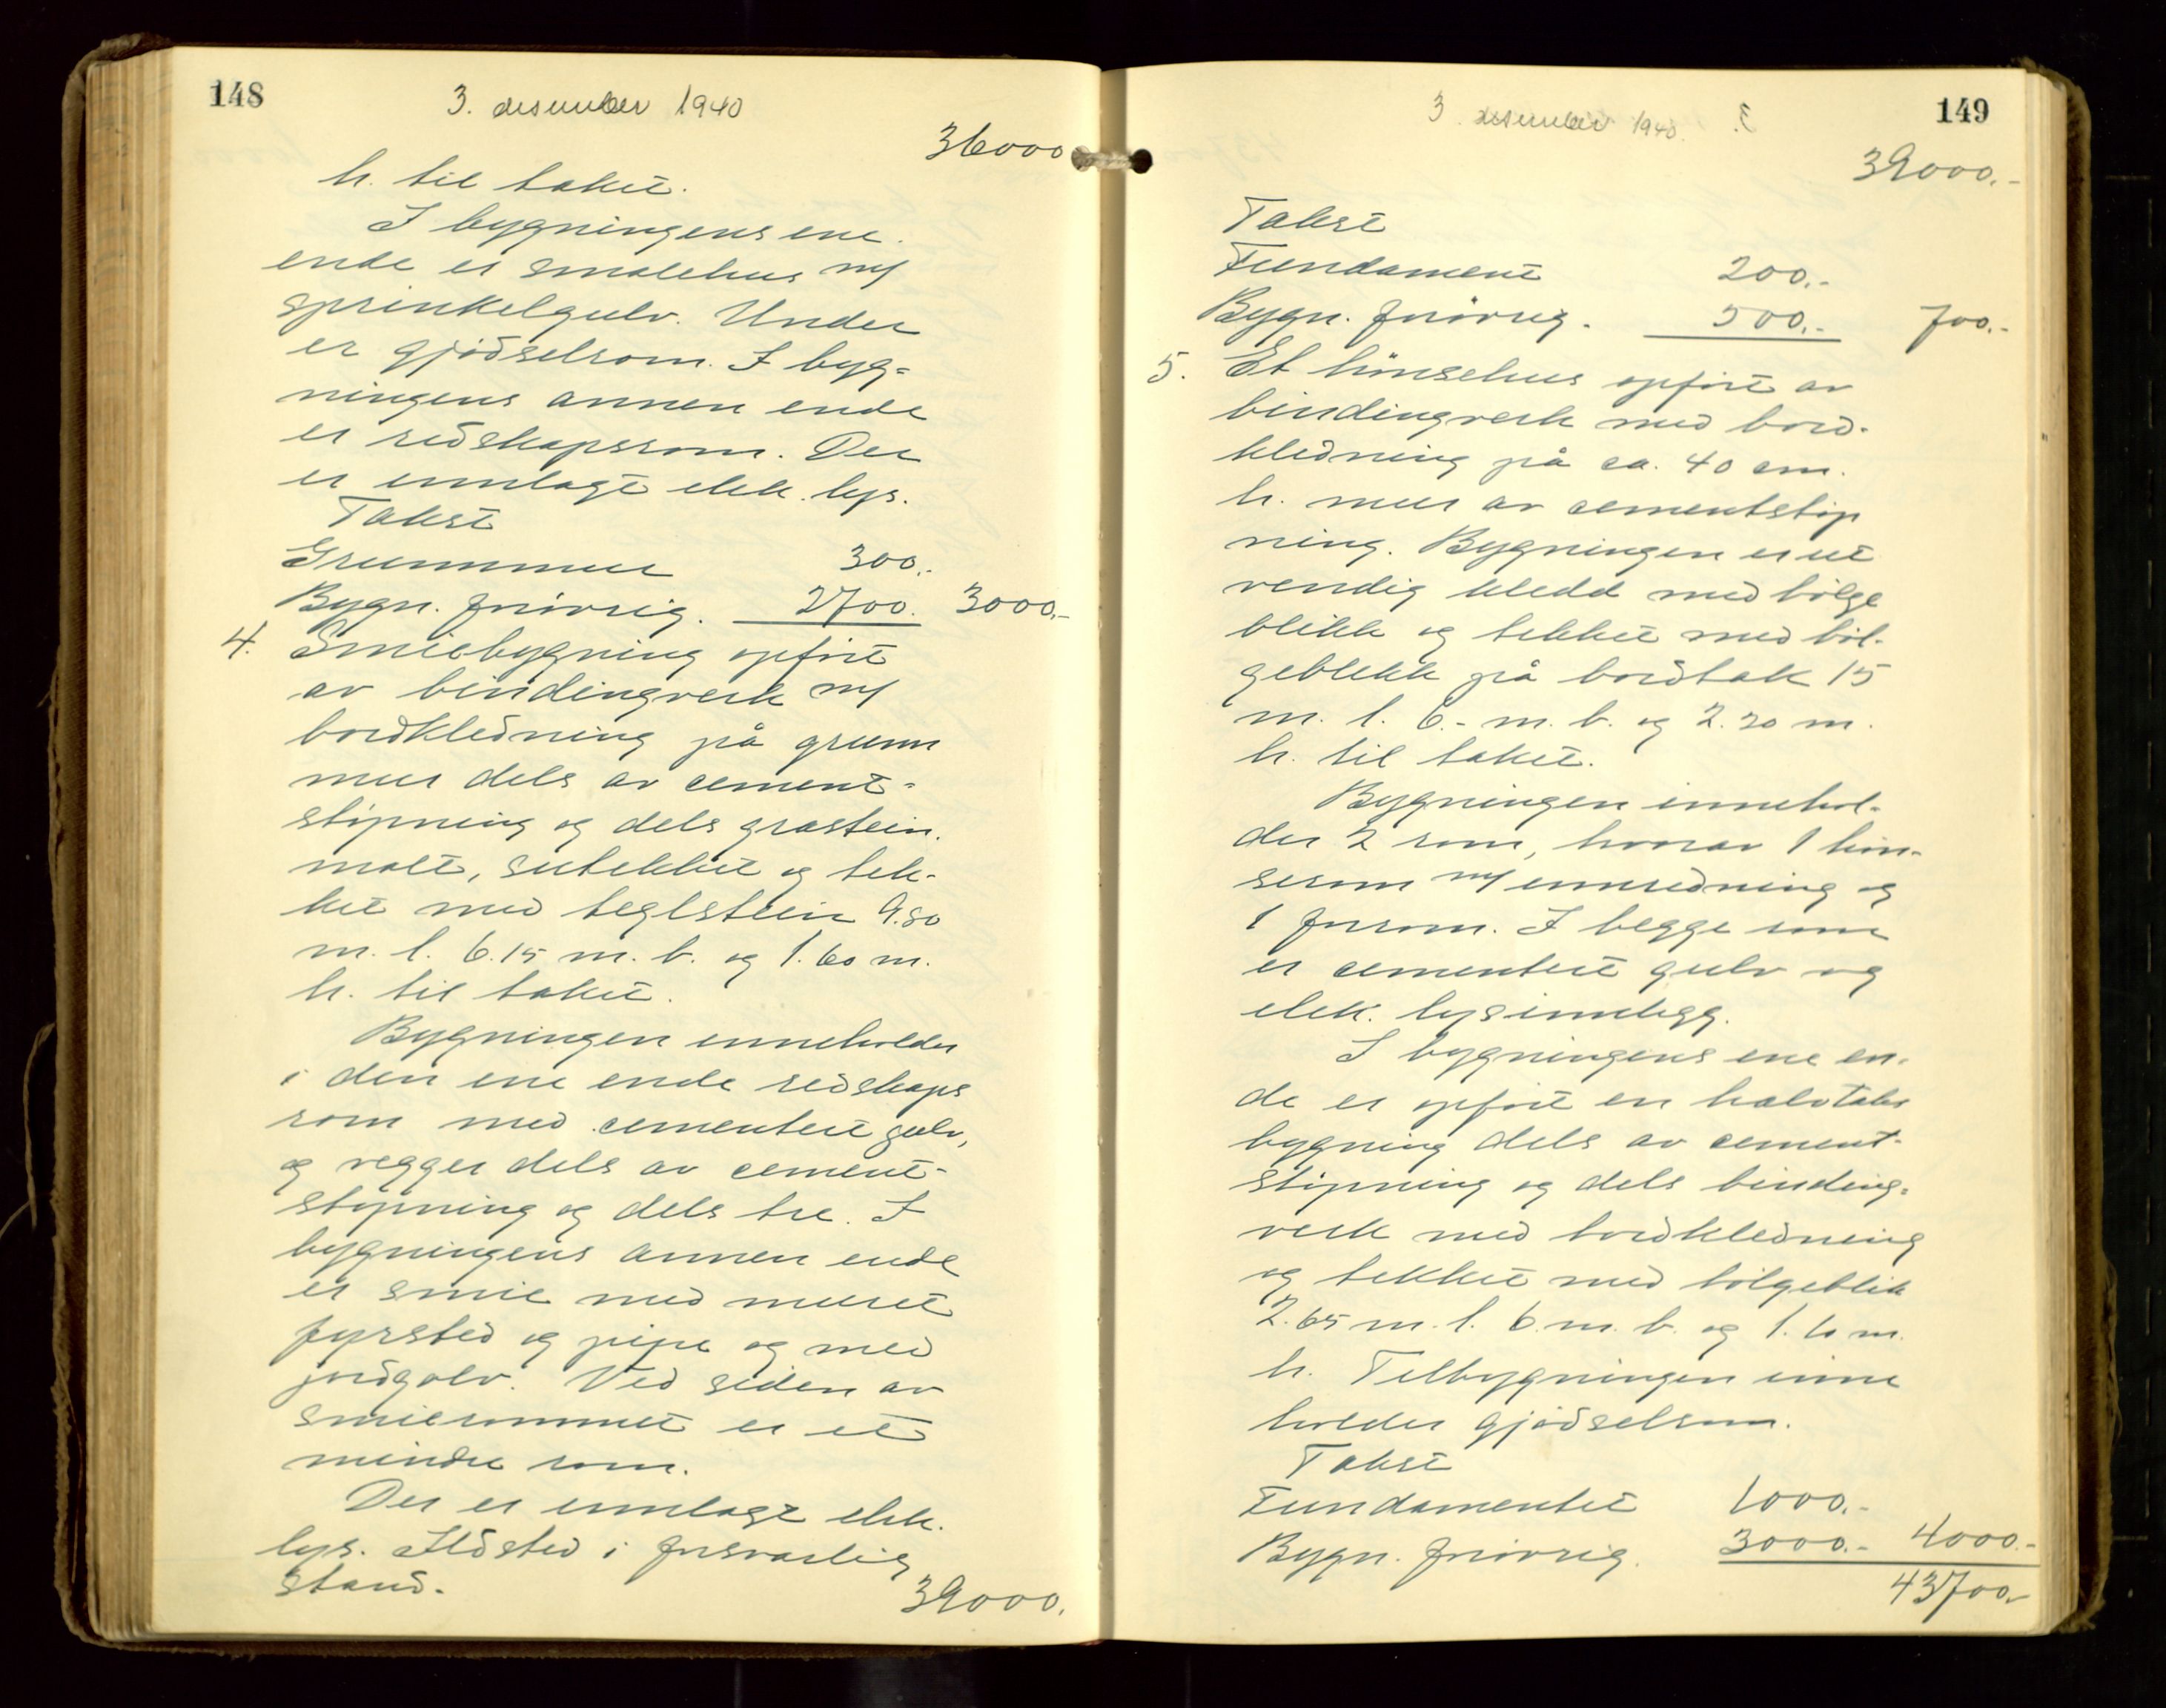 148
3. desember 1940
36000
h. til taket.
I bygningens ene
ende er smalehus m/
sprinkelgulv. Under
er gjødselrom. I byg-
ningens annen ende
er redskapsrom. Der
er innlagt elek. lys.
Takst
Grunnmur 300.-
Bygn. forøvrig. 2700. 3000.-
4. Smiebygning opført
av bindingverk m/
bordkledning på grunn
mur dels av cement-
støpning og dels gråstein.
malt, sutekket og tek-
ket med teglstein 9.80
m. l. 6.15 m. b. og 1.60 m.
h. til taket.
Bygningen inneholder
i den ene ende redskaps
rom med cementert gulv,
og vegger dels av cement-
støpning og dels tre. I
bygningens annen ende
er smie med muret
fyrsted og pipe og med
jordgolv. Ved siden av
smierommet er et
mindre rom.
Der er innlagt elek.
lys. Ildsted i forsvarlig
stand.
39000.
149
3. desember 1940.
39000.-
Takst
Fundament 200.-
Bygn. forøvrig. 500.- 700.-
5. Et hønsehus opført av
bindingverk med bord-
kledning på ca. 40 cm.
h. mur av cementstøp
ning. Bygningen er ut
vendig kledd med bølge
blikk og tekket med bøl-
geblikk på bordtak 15
m. l. 6.- m. b. og 2.20 m.
h. til taket.
Bygningen innehol-
der 2 rom, hvorav 1 høn-
serom m/ innredning og
1 forrom. I begge rom
er cementert gulv og
elek. lysinnlegg.
I bygningens ene en-
de er opført en halvtaks
bygning dels av cement-
støpning og dels binding-
verk med bordkledning
og tekket med bølgeblik
2.65 m. l. 6 m. b. og m.
h. Tilbygningen inne
holder gjødselrom.
Takst
Fundamentet 1000.-
Bygn. forøvrig. 3000.- 4000.-
43700.-